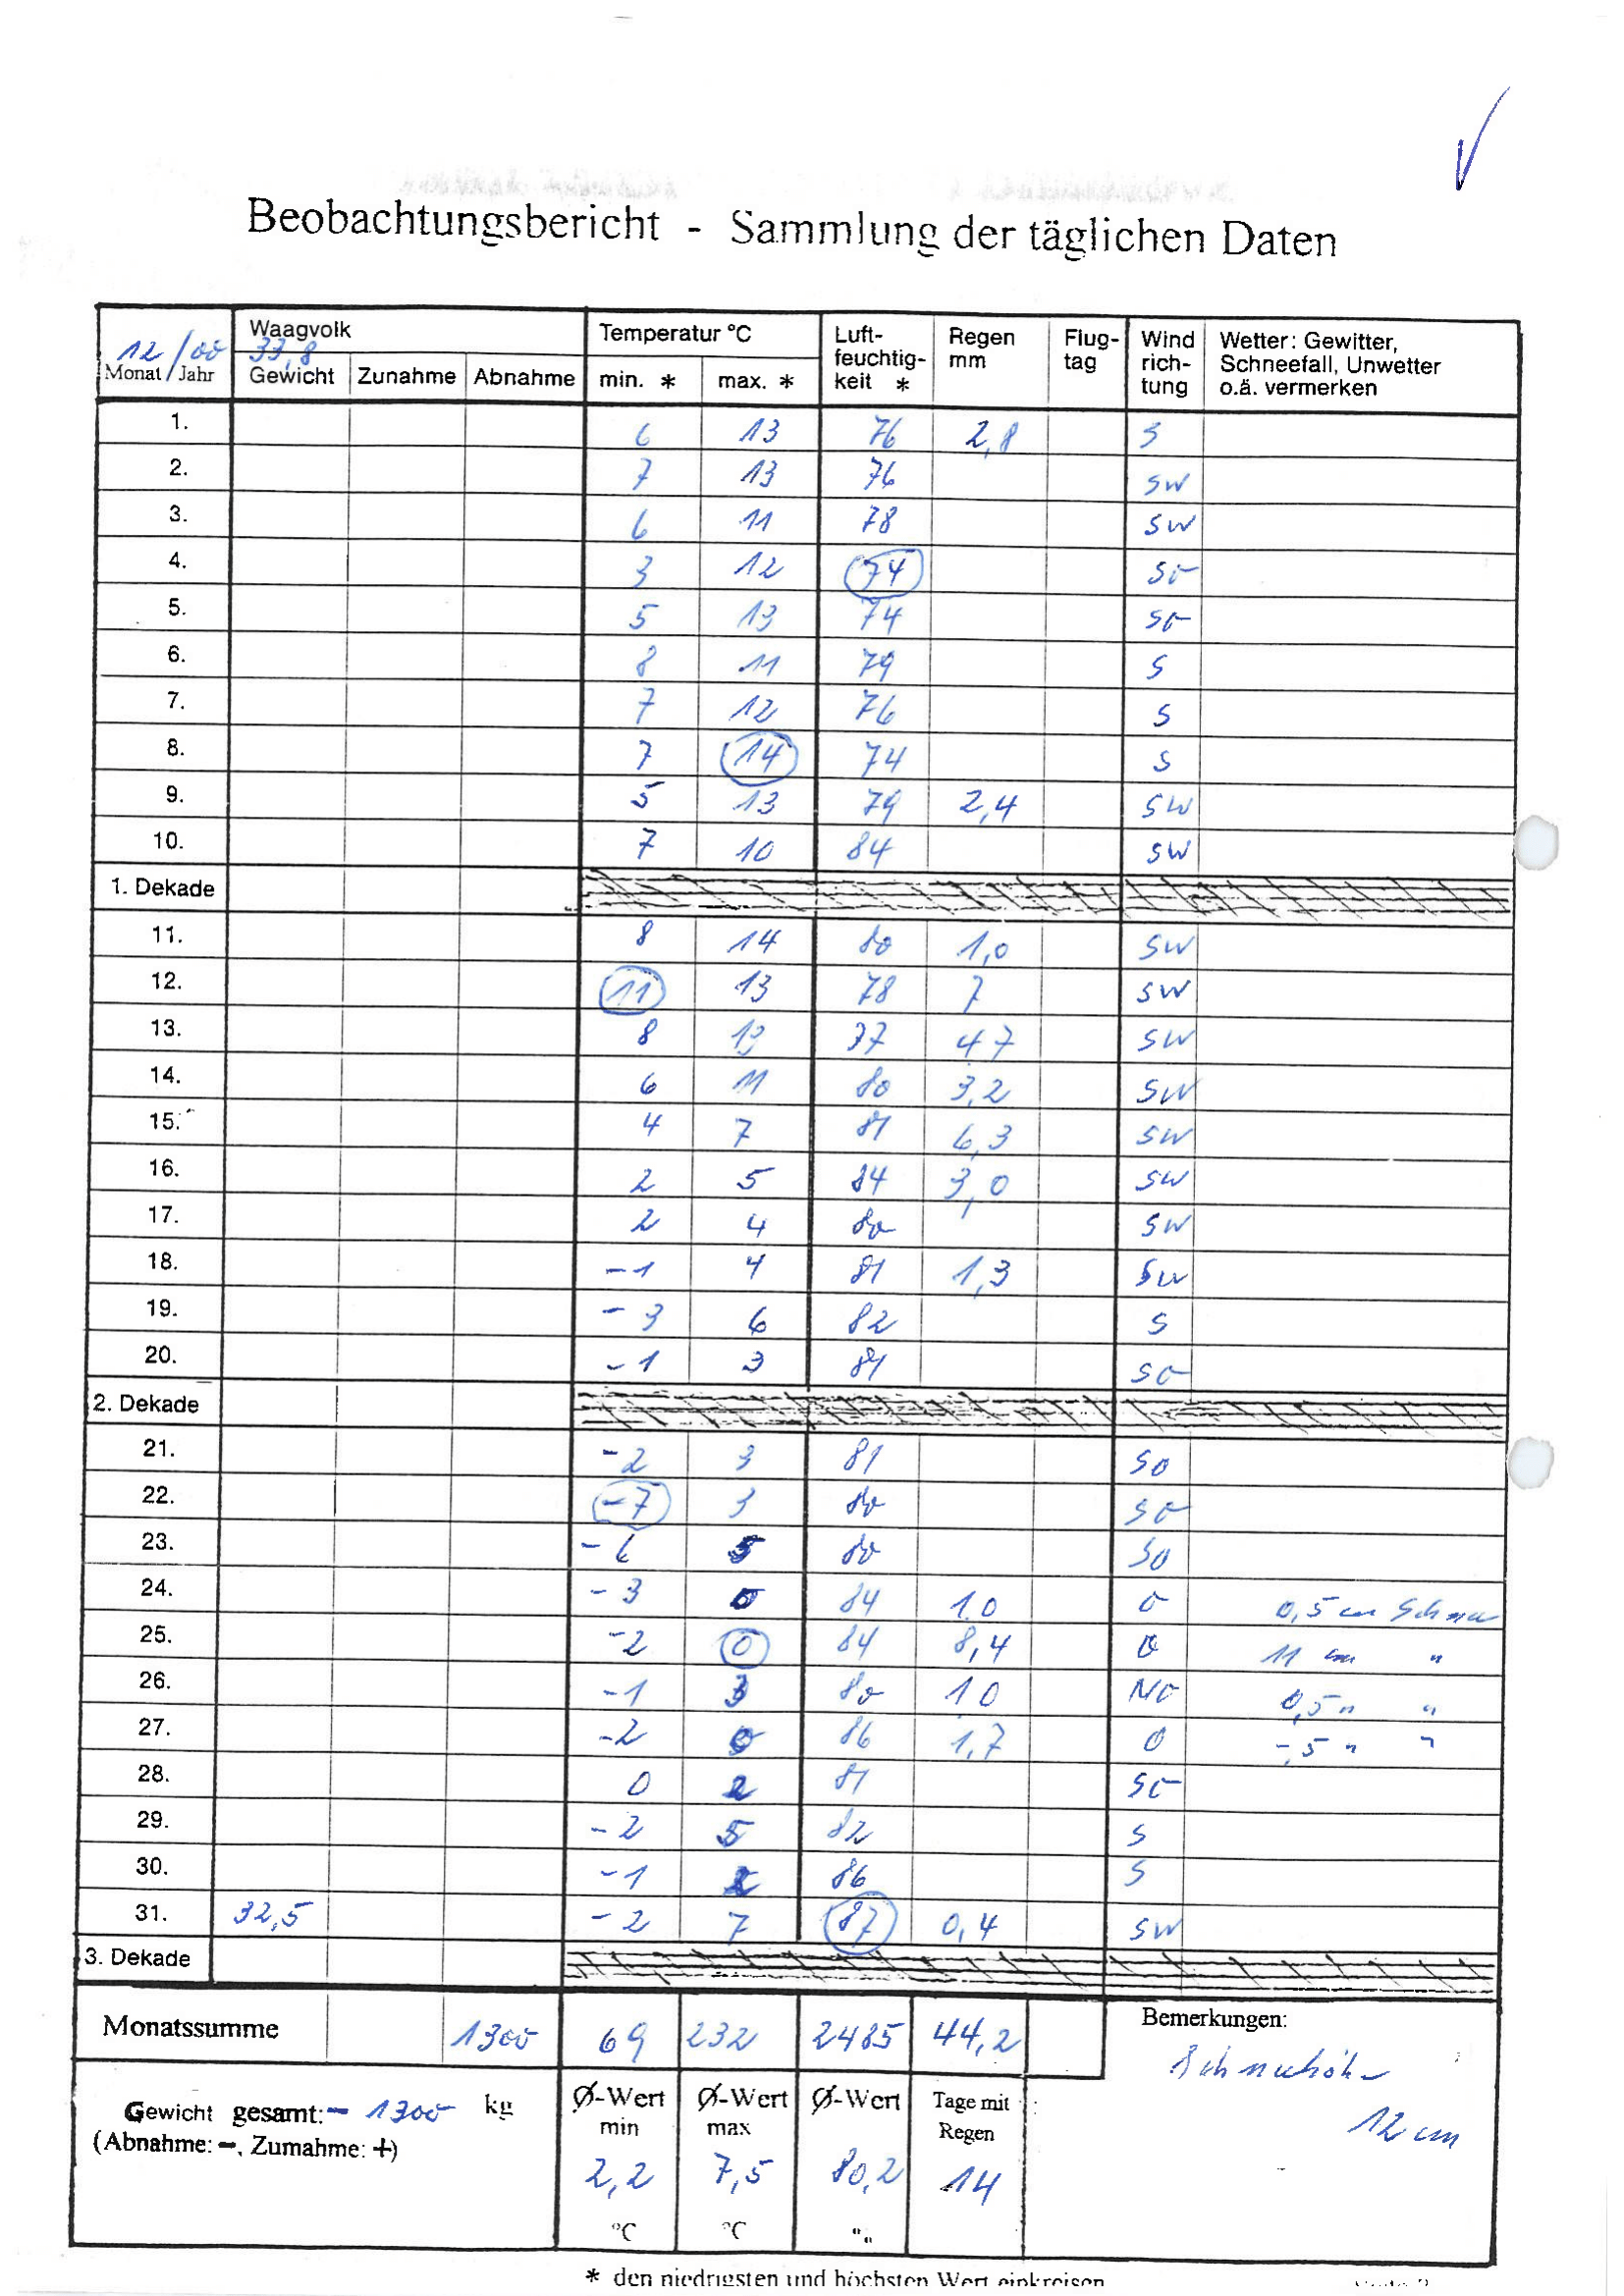 Beobachtungsbericht - Sammlung der täglichen Daten
12/00 Monat/Jahr Waagvolk 33,8 Gewicht Zunahme Abnahme Temperatur °C min. * max. * Luft-feuchtig-keit * Regen mm Flug-tag Wind rich-tung Wetter: Gewitter, Schneefall, Unwetter o.ä. vermerken
1. 6 13 76 2,8 S
2. 7 13 76 SW
3. 6 11 78 SW
4. 3 12 74 SO
5. 5 13 74 SO
6. 8 11 79 S
7. 7 12 76 S
8. 7 14 74 S
9. 5 13 79 2,4 SW
10. 7 10 84 SW
1. Dekade
11. 8 14 80 1,0 SW
12. 11 13 78 7 SW
13. 8 13 77 4 7 SW
14. 6 11 80 3,2 SW
15. 4 7 81 6,3 SW
16. 2 5 84 3,0 SW
17. 2 4 80 SW
18. -1 4 81 1,3 SW
19. -3 6 82 S
20. -1 3 81 SO
2. Dekade
21. -2 3 81 SO
22. -7 3 80 SO
23. -6 5 80 SO
24. -3 0 84 1 0 O 0,5 cm Schnee
25. -2 0 84 8,4 O 11 cm "
26. -1 3 80 1 0 NO 0,5 " "
27. -2 86 1,7 O -,5 " "
28. 0 2 81 SO
29. -2 5 82 S
30. -1 86 S
31. 32,5 -2 7 87 0,4 SW
3. Dekade
Monatssumme 1300 69 232 2485 44,2
Bemerkungen:
Schneehöhe
12 cm
Gewicht gesamt: - 1300 kg
(Abnahme: -, Zumahme: +)
Ø-Wert min Ø-Wert max Ø-Wert Tage mit Regen
2,2 7,5 80,2 14
°C °C
* den niedrigsten und höchsten Wert einkreisen